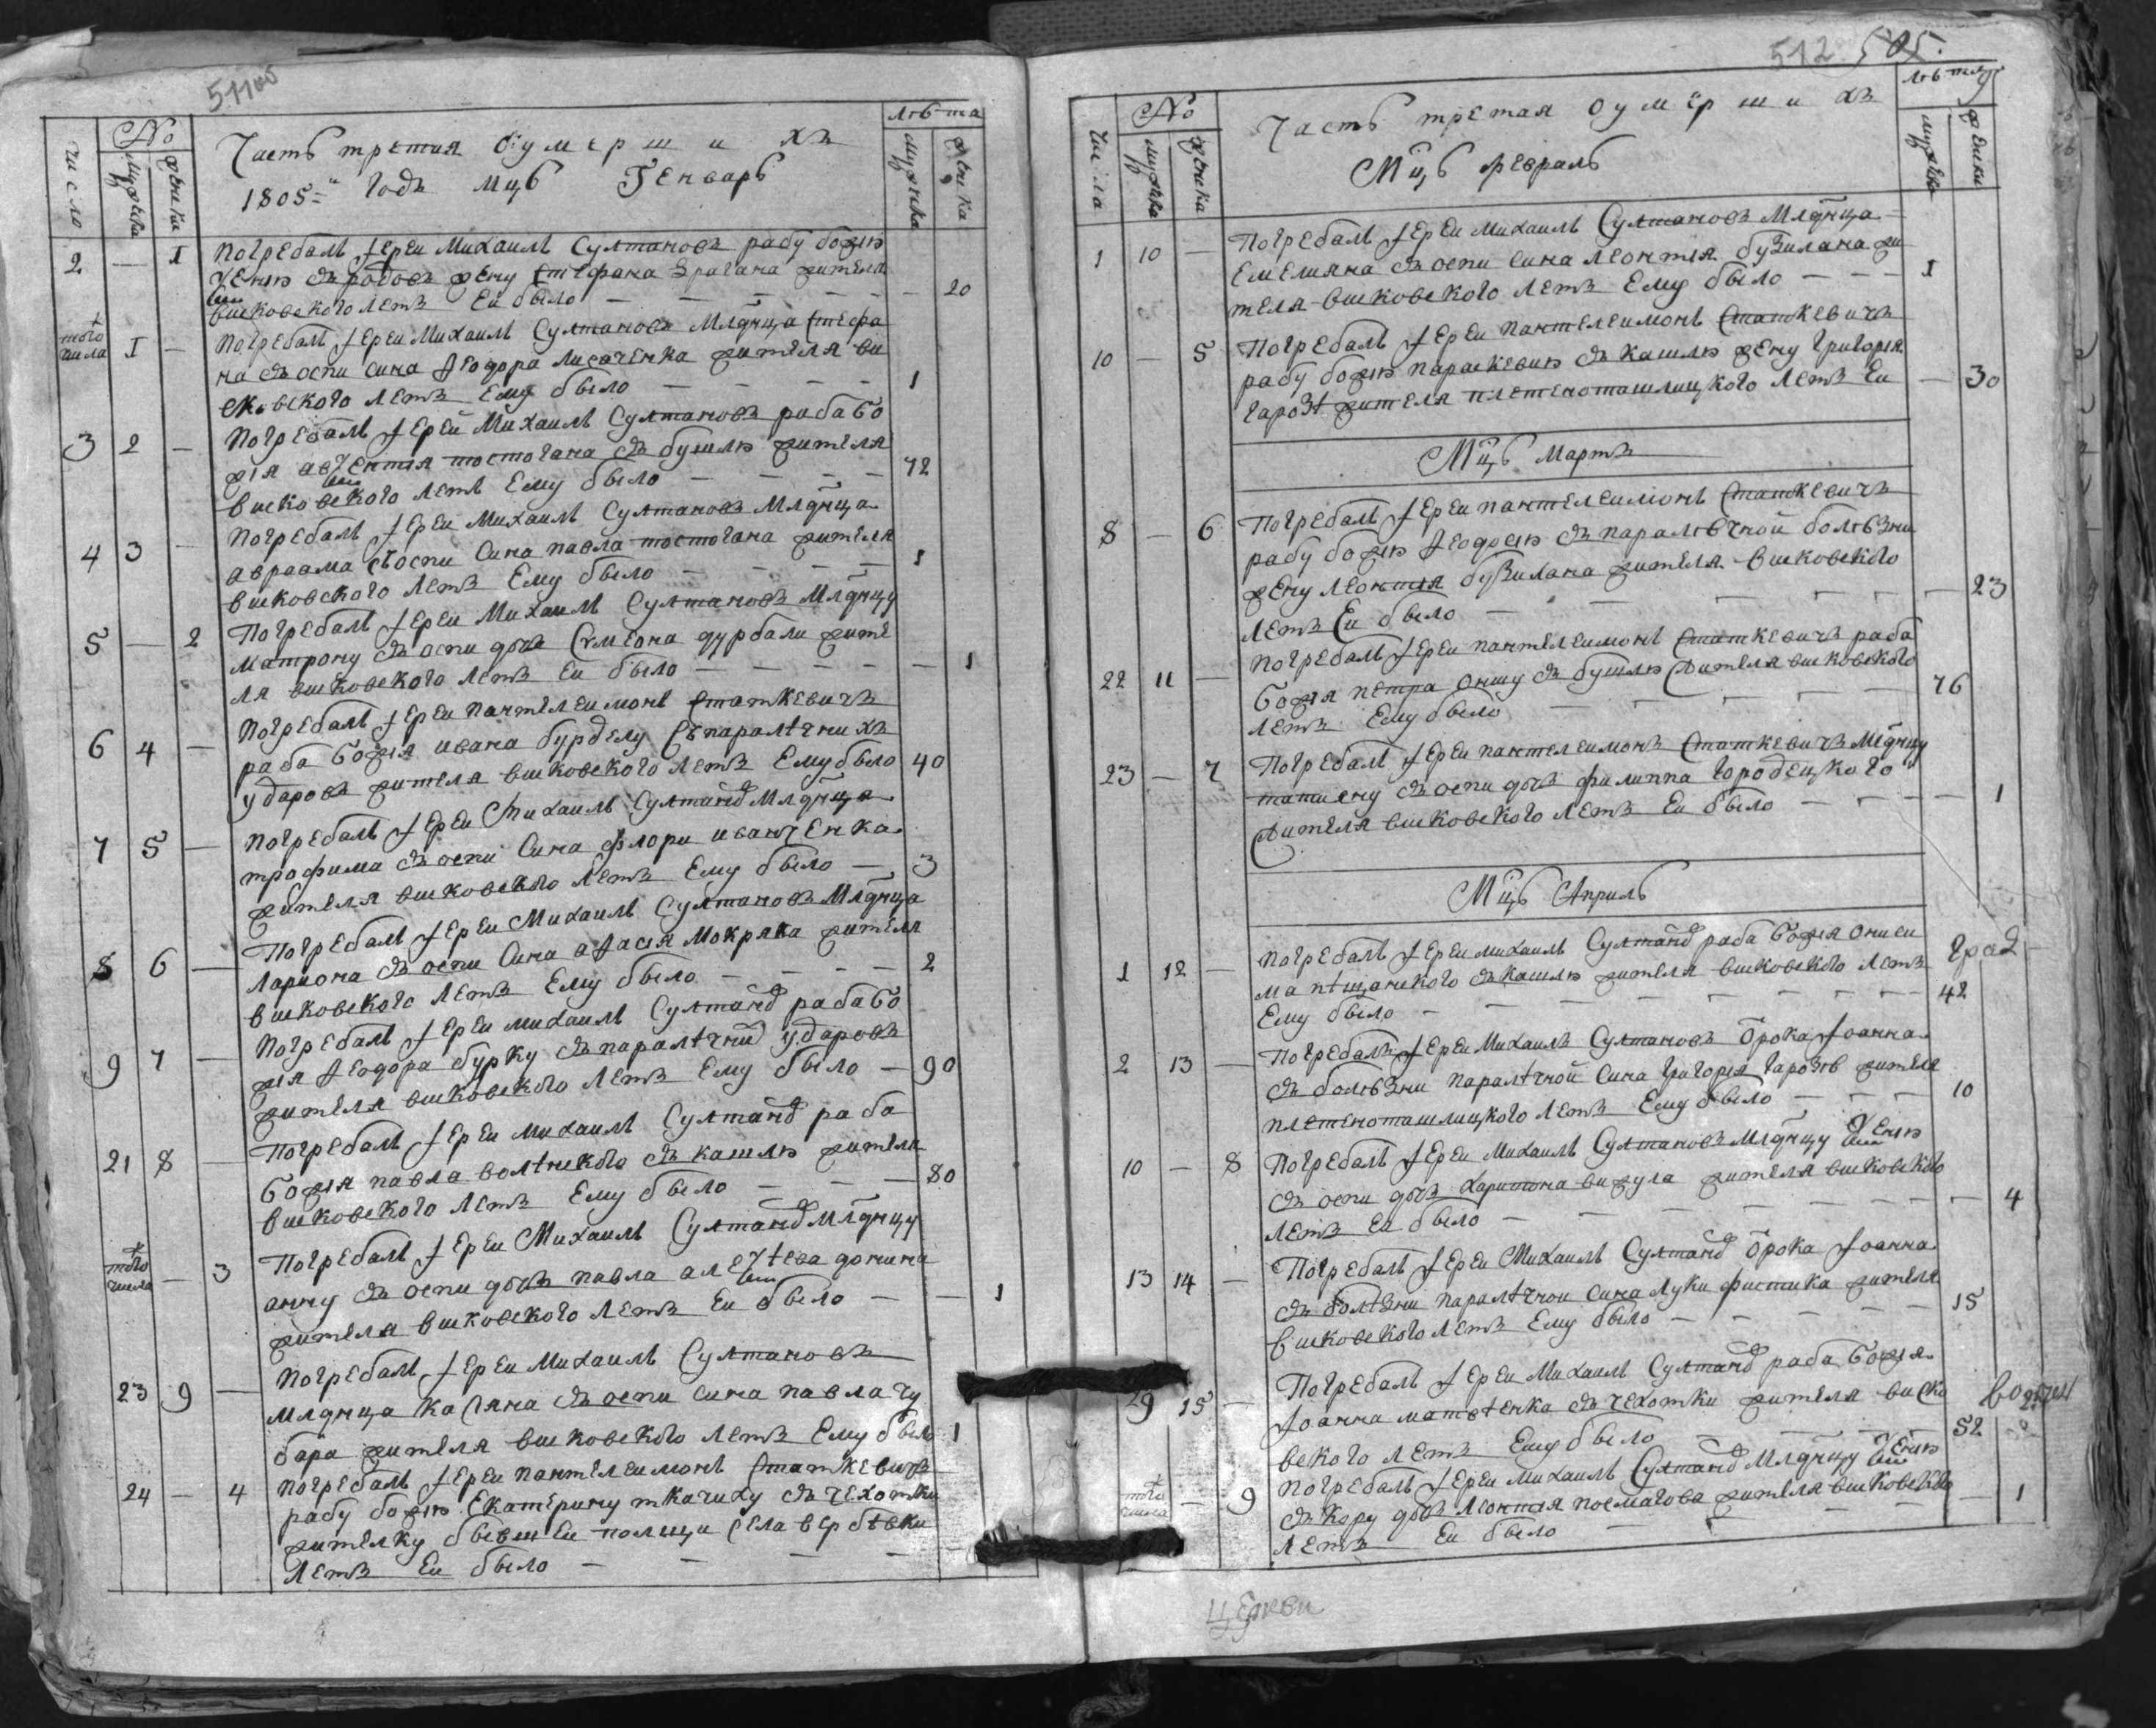 511об
Число
No
мужска
женска
Часть третия о умершихъ
1805= годъ мцъ Генварь
лѣта
мужска
женска
2 — 1 погребалъ Іереи Михаилъ Султановъ рабу божію
съ родовъ жену Стефана Драгана жителя
висковского летъ Еи было — — — — 20
того числа 1 — погребалъ Іереи Михаилъ Султановъ Младнца Стефа
на съ оспи сина Ѳеодора лисаченка жителя ви
сковского летъ Ему было — — — — 1
3 2 — погребалъ Іерей Михаилъ Султановъ раба бо
жія авѯентія тостогана съ бушлю жителя
висковского летъ Ему было — — — — 72
4 3 — погребалъ Іереи Михаилъ Султановъ Младнца
авраама съ оспи Сина павла тостогана жителя
висковского летъ Ему было — — — — 1
5 — 2 погребалъ Іереи Михаилъ Султановъ Младнцу
матрону съ оспи дочь Сѵмеона дурбали жите
ля висковского летъ Еи было — — — — 1
6 4 — погребалъ Іереи пантелеимонъ Статкевичъ
раба божія ивана бурделу съ паралѣчнихъ
ударовъ жителя висковского летъ Ему было 40
7 5 — погребалъ Іереи Михаилъ Султановъ Младнца
трофима съ оспи Сина флори иванченка
жителя висковского летъ Ему было — 3
8 6 — погребалъ Іереи Михаилъ Султановъ Младнца
лариона съ оспи Сина аѳасія мокряка жителя
висковского летъ Ему было — — — — 2
9 7 — погребалъ Іереи михаилъ Султановъ раба бо
жія Ѳеодора бурку съ паралѣчнихъ ударовъ
жителя висковского летъ Ему было — 90
21 8 — погребалъ Іереи михаилъ Султановъ раба
божія павла волѣнского съ кашлю жителя
висковского летъ Ему было — — — 80
того числа — 3 погребалъ Іереи Михаилъ Султановъ Младнцу
анну съ оспи дочь павла алеѯѣева донина
жителя висковского летъ Еи было — — 1
23 9 — погребалъ Іереи Михаилъ Султановъ
младнца касіяна съ оспи сина павла чу
бара жителя висковского летъ Ему было 1
24 — 4 погребалъ Іереи пантелеимонъ Статкевичъ
рабу божію Екатерину ткачиху съ чехотки
жителку бывшеи полщи села вербѣвки
летъ Еи было — — — —
512 505.
Числа
No
мужска
женска
Часть третая о умершихъ
Мцъ февраль
лѣта
мужска
женски
1 10 — погребалъ Іереи михаилъ Султановъ Младнца
Емелияна съ оспи сина леонтія бузилана жи
теля висковского летъ Ему было — — — 1
10 — 5 погребалъ Іереи пантелеимонъ Статкевичъ
рабу божію параскевию съ кашлю жену григорія
гарозѣ жителя плетеноташлицкого летъ Еи — 30
Мцъ мартъ
8 — 6 погребалъ Іереи пантелеимонъ Статкевичъ
рабу божію Ѳеодосію съ паралѣчной болѣзни
жену леонтія бузилана жителя висковского
летъ Еи было — — — — — 23
22 11 — погребалъ Іереи пантелеимонъ Статкевичъ раба
божія петра оншу съ бушлю жителя висковского
летъ Ему было — — — — 76
23 — 7 погребалъ Іереи пантелеимонъ Статкевичъ младнцу
татиену съ оспи дочь филиппа городецкого
жителя висковского летъ Еи было — — — — 1
Мцъ Априль
1 12 — погребалъ Іереи михаилъ Султановъ раба божія ониси
ма пѣщанского съ кашлю жителя висковского летъ
Ему было — — — — — — 42
2 13 — погребалъ Іереи Михаилъ Султановъ Ѿрока Іоанна
съ болѣзни паралѣчной сина григорія гарозѣ жителя
плетеноташлицкого летъ Ему было — — — 10
10 — 8 погребалъ Іереи Михаилъ Султановъ младнцу
съ оспи дочь харитона вижула жителя висковского
летъ Еи было — — — — — — 4
13 14 — погребалъ Іереи Михаилъ Султановъ Ѿрока Іоанна
съ болѣзни паралѣчнои сина луки фистика жителя
висковского летъ Ему было — — — — — 15
29 15 — погребалъ Іереи Михаилъ Султановъ раба божія
Іоанна матвѣенка съ чехотки жителя виско
вского летъ Ему было — — — — 52
того числа — 9 погребалъ Іереи михаилъ Султановъ младнцу
съ кору дочь леонтія жителя висковского
летъ Еи было — — — — 1
церкви